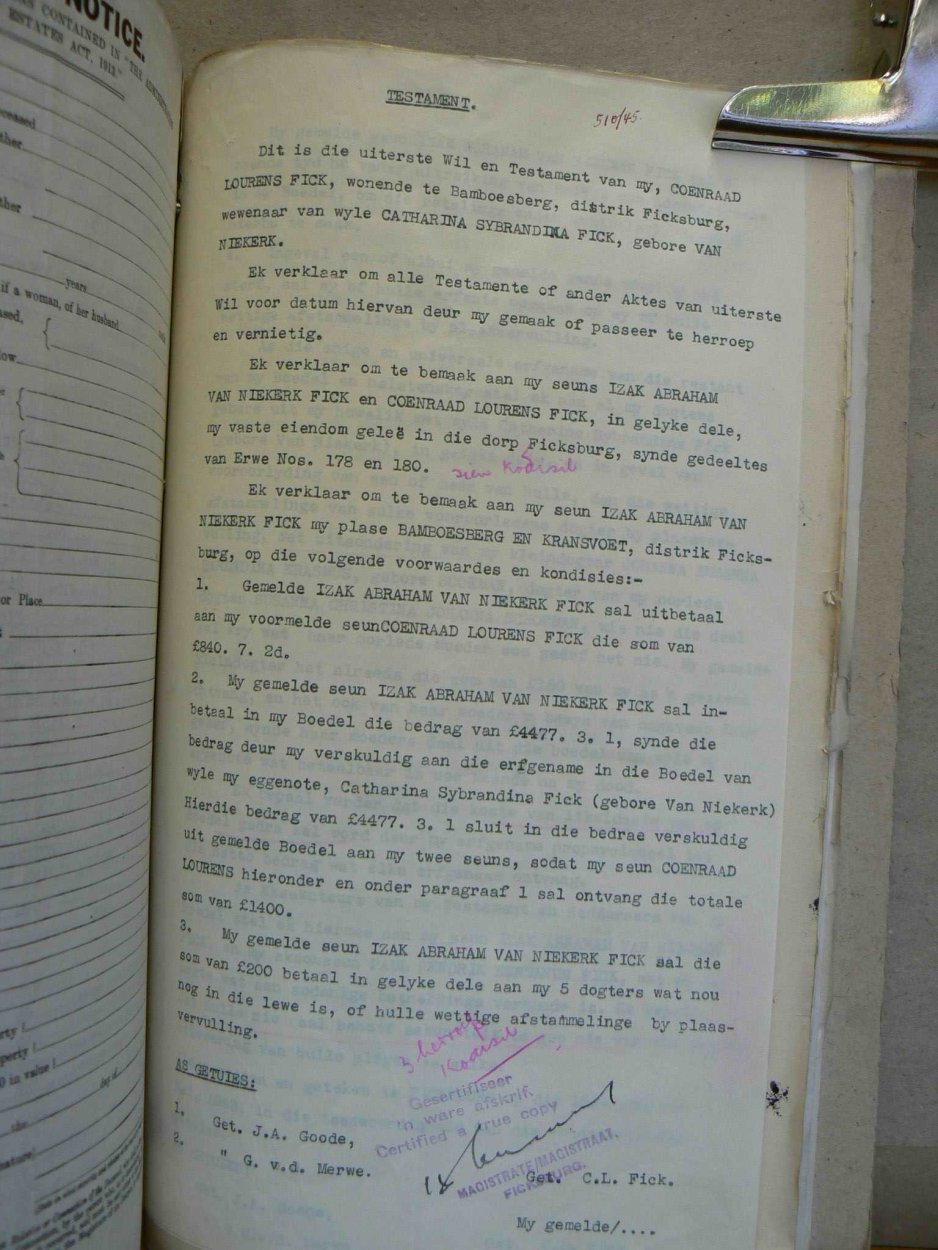 NOTICE.
CONTAINED IN "THE
ESTATES ACT, 1913."
years
if a woman, of her husband
or Place
in value
day of
TESTAMENT.
510/45.
Dit is die uiterste Wil en Testament van my, COENRAAD
LOURENS FICK, wonende te Bamboesberg, distrik Ficksburg,
wewenaar van wyle CATHARINA SYBRANDINA FICK, gebore VAN
NIEKERK.
Ek verklaar om alle Testamente of ander Aktes van uiterste
Wil voor datum hiervan deur my gemaak of passeer te herroep
en vernietig.
Ek verklaar om te bemaak aan my seuns IZAK ABRAHAM
VAN NIEKERK FICK en COENRAAD LOURENS FICK, in gelyke dele,
my vaste eiendom geleë in die dorp Ficksburg, synde gedeeltes
van Erwe Nos. 178 en 180. sien Kodisil
Ek verklaar om te bemaak aan my seun IZAK ABRAHAM VAN
NIEKERK FICK my plase BAMBOESBERG EN KRANSVOET, distrik Ficks-
burg, op die volgende voorwaardes en kondisies:-
1. Gemelde IZAK ABRAHAM VAN NIEKERK FICK sal uitbetaal
aan my voormelde seunCOENRAAD LOURENS FICK die som van
£840. 7. 2d.
2. My gemelde seun IZAK ABRAHAM VAN NIEKERK FICK sal in-
betaal in my Boedel die bedrag van £4477. 3. 1, synde die
bedrag deur my verskuldig aan die erfgename in die Boedel van
wyle my eggenote, Catharina Sybrandina Fick (gebore Van Niekerk)
Hierdie bedrag van £4477. 3. 1 sluit in die bedrae verskuldig
uit gemelde Boedel aan my twee seuns, sodat my seun COENRAAD
LOURENS hieronder en onder paragraaf 1 sal ontvang die totale
som van £1400.
3. My gemelde seun IZAK ABRAHAM VAN NIEKERK FICK sal die
som van £200 betaal in gelyke dele aan my 5 dogters wat nou
nog in die lewe is, of hulle wettige afstammelinge by plaas-
vervulling.
3 herroep
Kodisil
AS GETUIES:
Gesertifiseer
'n ware afskrif.
Certified a true copy
MAGISTRATE/MAGISTRAAT.
FICKSBURG.
1. Get. J.A. Goode,
2. " G. v.d. Merwe.
Get. C.L. Fick.
My gemelde/....